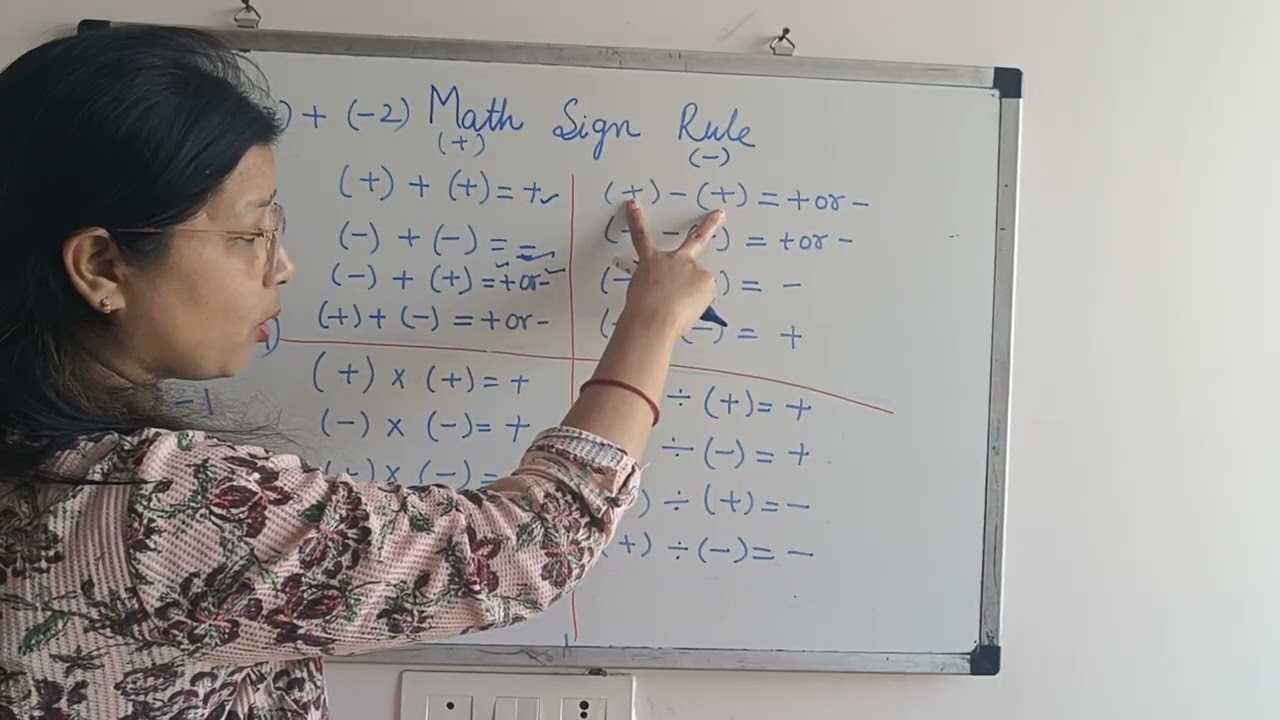 ) + (-2) Math Sign Rule
(+)
(-)
(+) + (+) = +✓
(-) + (-) = =
(-) + (+) = + or -
(+) + (-) = + or -
(+) - (+) = + or -
= + or -
) = -
(-) = +
)
-1
(+) × (+) = +
(-) × (-) = +
(+) × (-) =
÷ (+) = +
÷ (-) = +
) ÷ (+) = -
(+) ÷ (-) = -